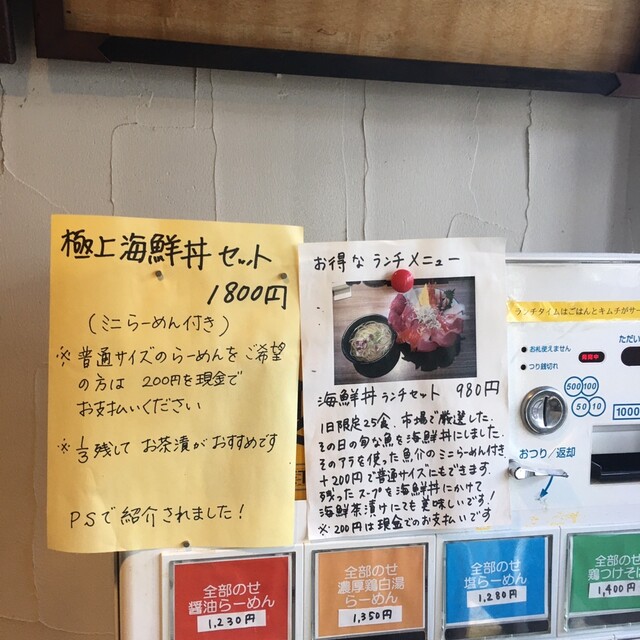 極上海鮮丼セット
1800円
(ミニらーめん付き)
※ 普通サイズのらーめんをご希望
の方は 200円を現金で
お支払いください
※ 1/3残して お茶漬がおすすめです
PSで紹介されました!
お得なランチメニュー
海鮮丼ランチセット 980円
1日限定25食、市場で厳選した
その日の旬な魚を海鮮丼にしました。
そのアラを使った魚介のミニらーめん付き
+200円で普通サイズにもできます。
残ったスープを海鮮丼にかけて
海鮮茶漬けにても美味しいです!
※200円は現金でのお支払いです
ランチタイムはごはんとキムチがサー
お札使えません
つり銭切れ
ただい
500 100
50 10
1000
おつり/返却
全部のせ
醤油らーめん
1,230円
全部のせ
濃厚鶏白湯
らーめん
1,350円
全部のせ
塩らーめん
1,280円
全部のせ
鶏つけそば
1,400円